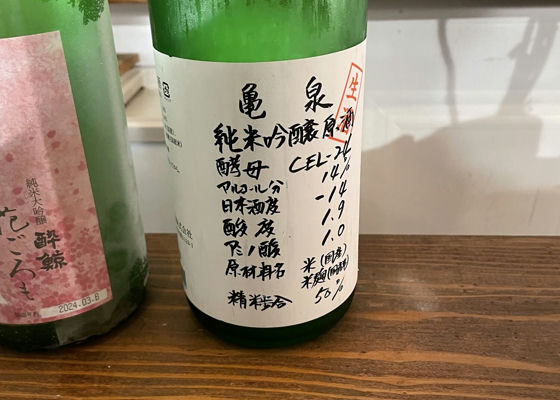 亀泉
純米吟醸原酒
酵母 CEL-24
アルコール分 14%
日本酒度 -14
酸度 1.9
アミノ酸 1.0
原材料名 米(国産)
米麹(国産米)
精米歩合 50%
生
純米大吟醸
酔鯨
花ごろも
2024.03.6